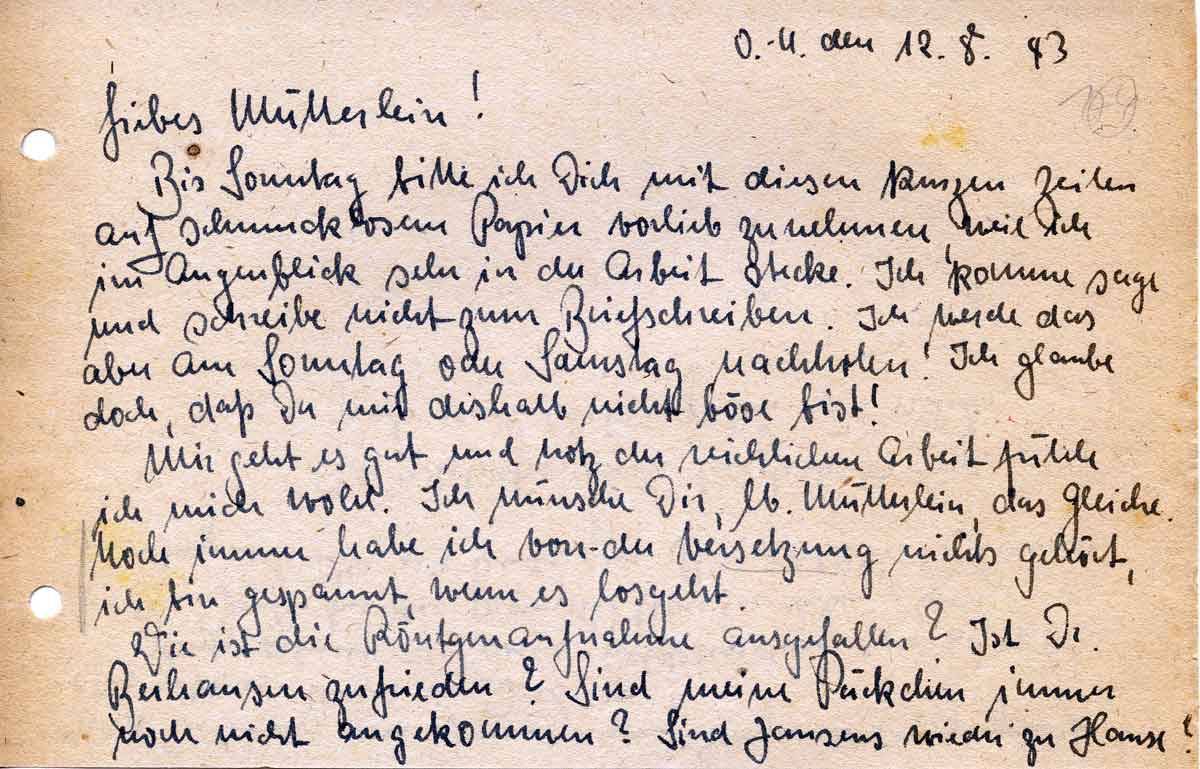 O.-U. den 12.8. 43
Liebes Mütterlein!
Bis Sonntag bitte ich Dich mit diesen kurzen Zeilen
auf schmucklosem Papier vorlieb zu nehmen, weil ich
im Augenblick sehr in der Arbeit stecke. Ich komme sage
und schreibe nicht zum Briefschreiben. Ich werde das
aber am Sonntag oder Samstag nachholen! Ich glaube
doch, daß Du mir deshalb nicht böse bist!
Mir geht es gut und trotz der reichlichen Arbeit fühle
ich mich wohl. Ich wünsche Dir, lb. Mütterlein, das Gleiche.
Noch immer habe ich von der Versetzung nichts gehört,
ich bin gespannt, wenn es losgeht.
Wie ist die Röntgenaufnahme ausgefallen? Ist Dr.
zufrieden? Sind meine Päckchen immer
noch nicht angekommen? Sind Jansens wieder zu Hause?